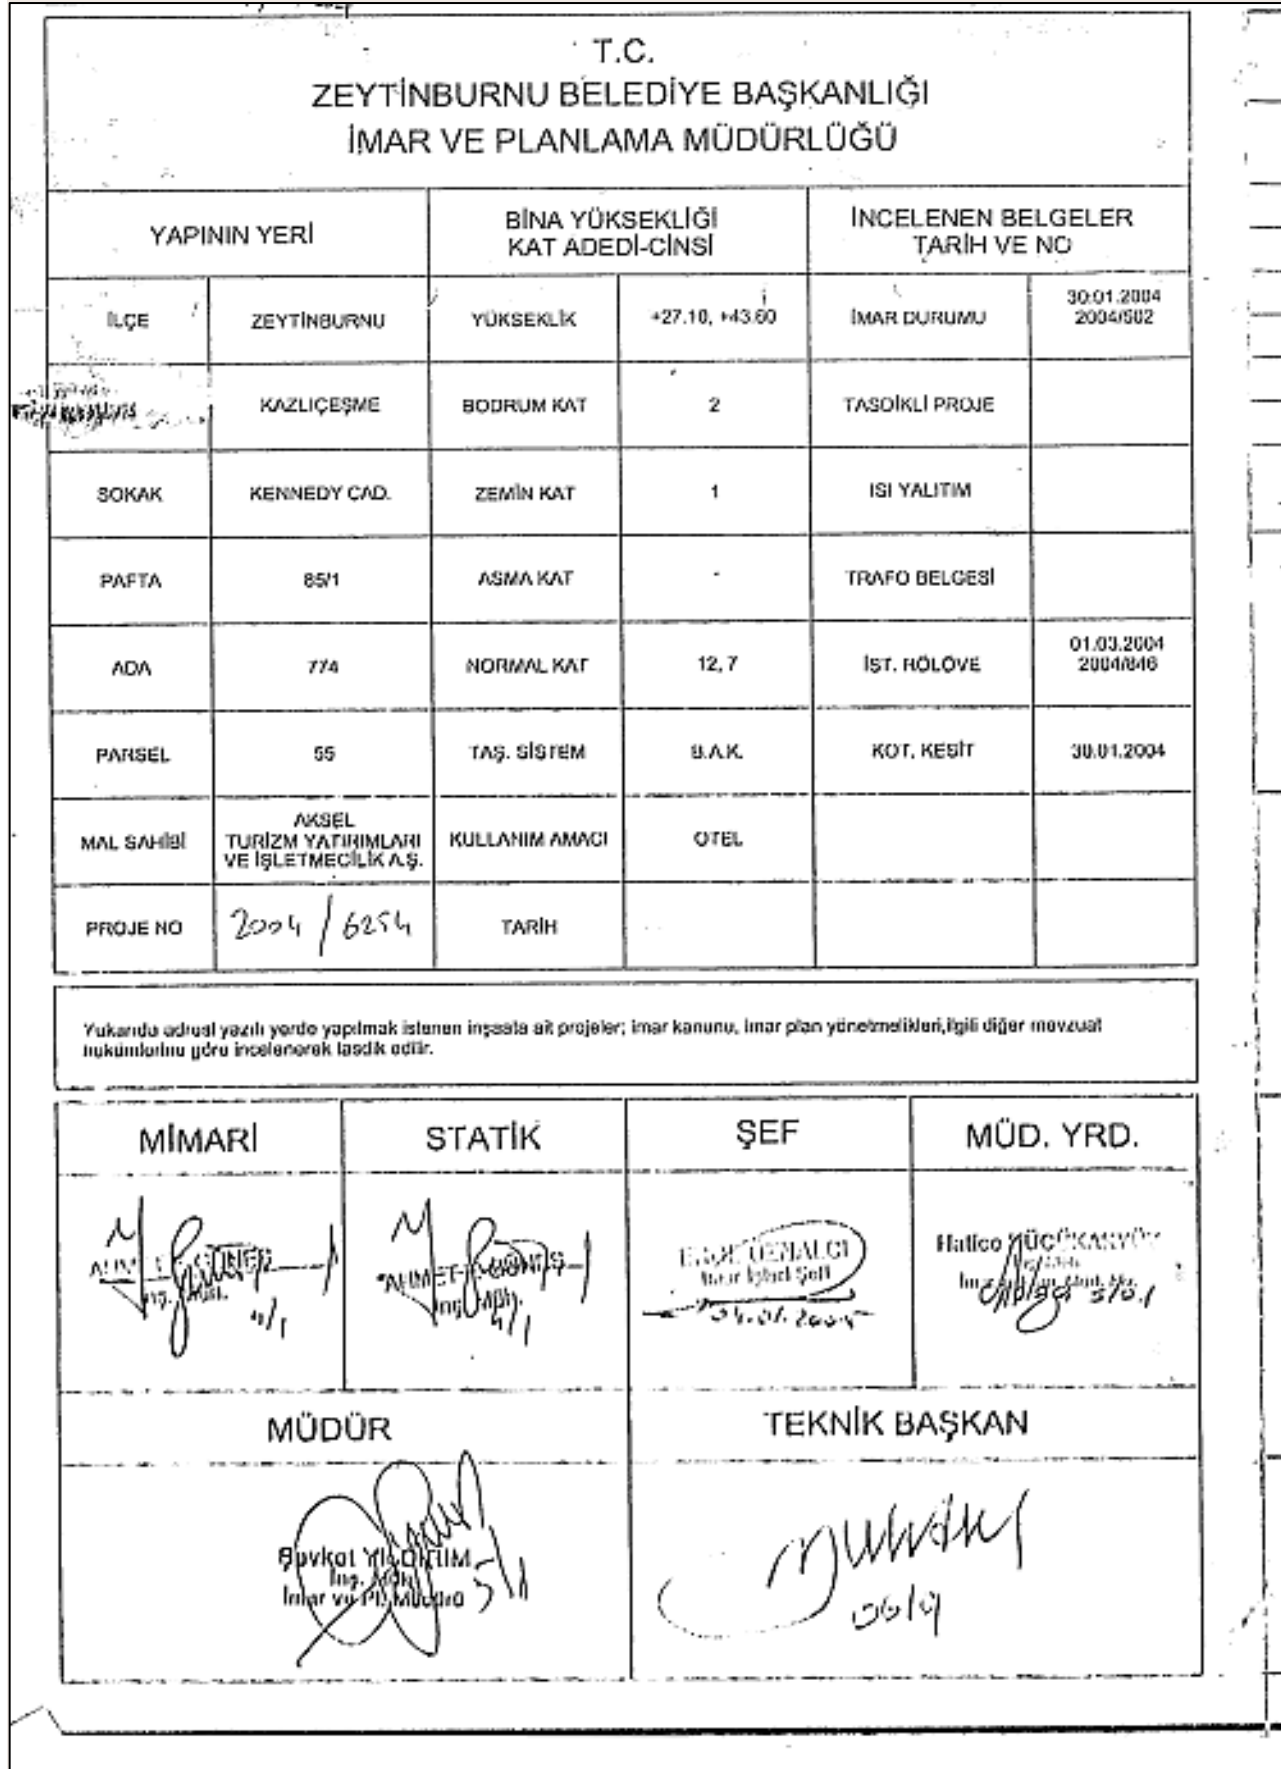 T.C.
ZEYTİNBURNU BELEDİYE BAŞKANLIĞI
İMAR VE PLANLAMA MÜDÜRLÜĞÜ
YAPININ YERİ
BİNA YÜKSEKLİĞİ
KAT ADEDİ-CİNSİ
İNCELENEN BELGELER
TARİH VE NO
İLÇE
ZEYTİNBURNU
YÜKSEKLİK
+27.10, +43.60
İMAR DURUMU
30.01.2004
2004/502
KAZLIÇEŞME
BODRUM KAT
2
TASDİKLİ PROJE
SOKAK
KENNEDY CAD.
ZEMİN KAT
1
ISI YALITIM
PAFTA
85/1
ASMA KAT
-
TRAFO BELGESİ
ADA
774
NORMAL KAT
12, 7
İST. RÖLÖVE
01.03.2004
2004/846
PARSEL
55
TAŞ. SİSTEM
B.A.K.
KOT. KESİT
30.01.2004
MAL SAHİBİ
AKSEL
TURİZM YATIRIMLARI
VE İŞLETMECİLİK A.Ş.
KULLANIM AMACI
OTEL
PROJE NO
2004 / 6254
TARİH
Yukarıda adresi yazılı yerde yapılmak istenen inşaata ait projeler; imar kanunu, imar plan yönetmelikleri,ilgili diğer mevzuat
hükümlerine göre incelenerek tasdik edilir.
MİMARİ
STATİK
ŞEF
MÜD. YRD.
AHMET GÜNEŞ
İnş. Müh.
4/1
AHMET GÜNEŞ
İnş. Müh.
4/1
İmar İşleri Şefi
04.01.2005
Hatice
5/01
MÜDÜR
TEKNİK BAŞKAN
Şevket YILDIRIM
İnş. Müh.
İmar ve Pl. Müdürü
5/1